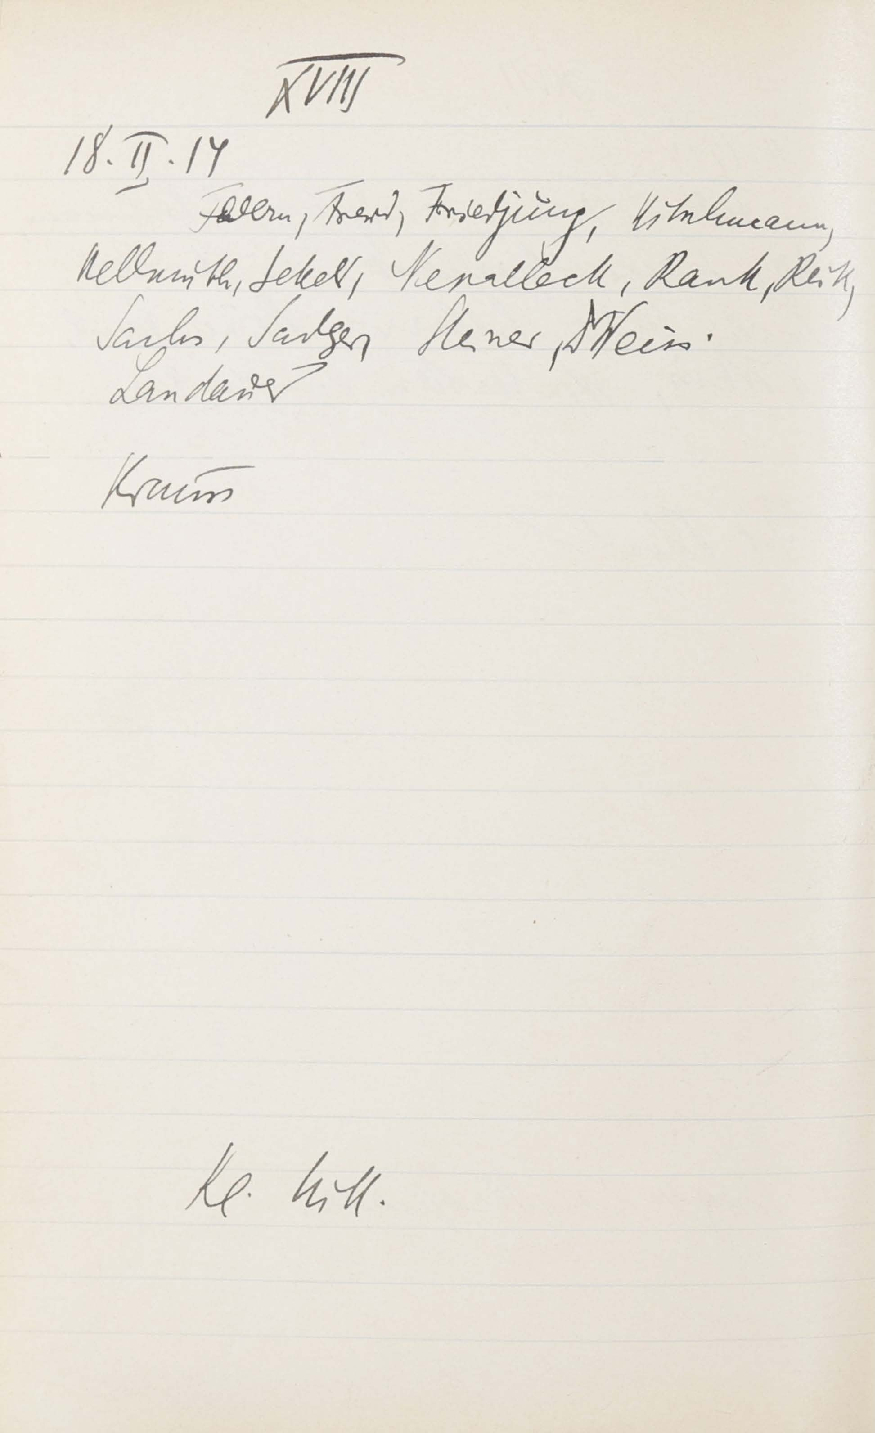 XVIII
18. II. 14
Federn, Freud, Friedjung, Hitschmann,
Hellmuth, Jekels, Nepalleck, Rank, Reik,
Sachs, Sadger, Steiner, Weiss.
Landauer
Krauss
Kl. Mitt.